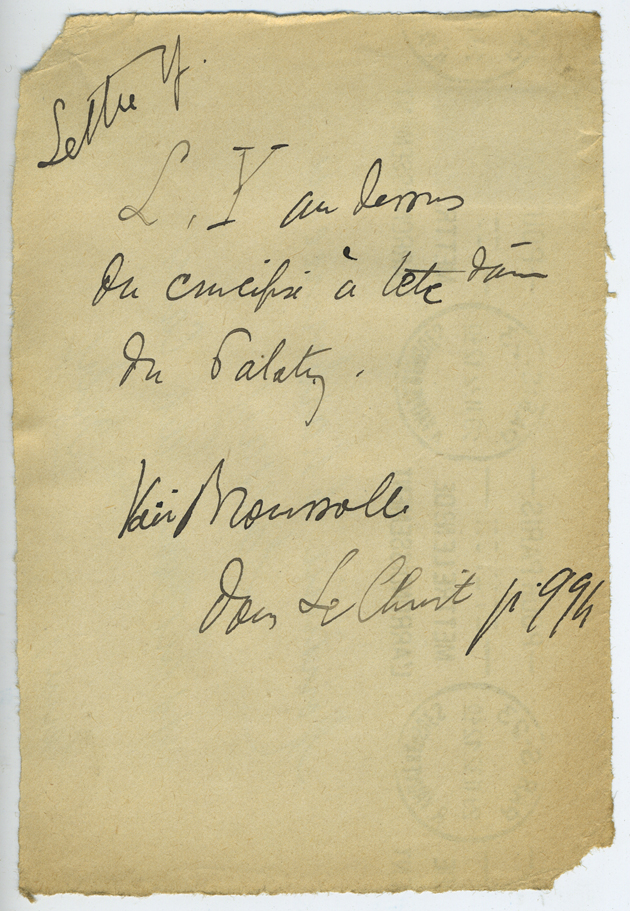 Lettre Y.
L, Y au dessus
du crucifié à tête d'âne
du Palatin.
Voir Broussolle
Dans Le Christ p. 994